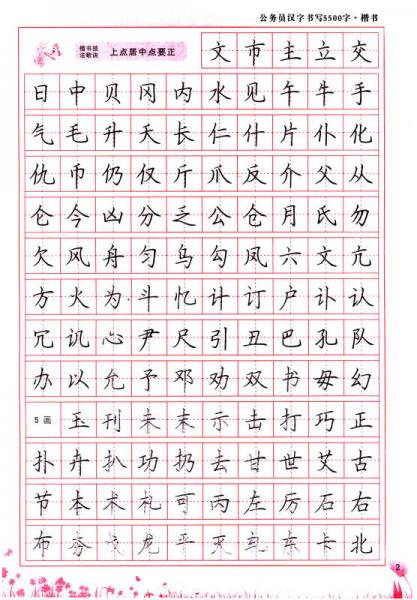 公务员汉字书写5500字·楷书
楷书技法歌诀 上点居中点要正
文市主立交
日中贝冈内水见午牛手
气毛升夭长仁什片仆化
仇币仍仅斤爪反介父从
仑今凶分乏公仓月氏勿
欠风丹匀乌勾凤六文亢
方火为斗忆计订户讣认
冗讥心尹尺引丑巴孔队
办以允予邓劝双书毋幻
5画 玉刊未末示击打巧正
扑卉扒功扔去甘世艾古
节本术札可丙左厉石右
布夯戊龙平灭轧东卡北
2